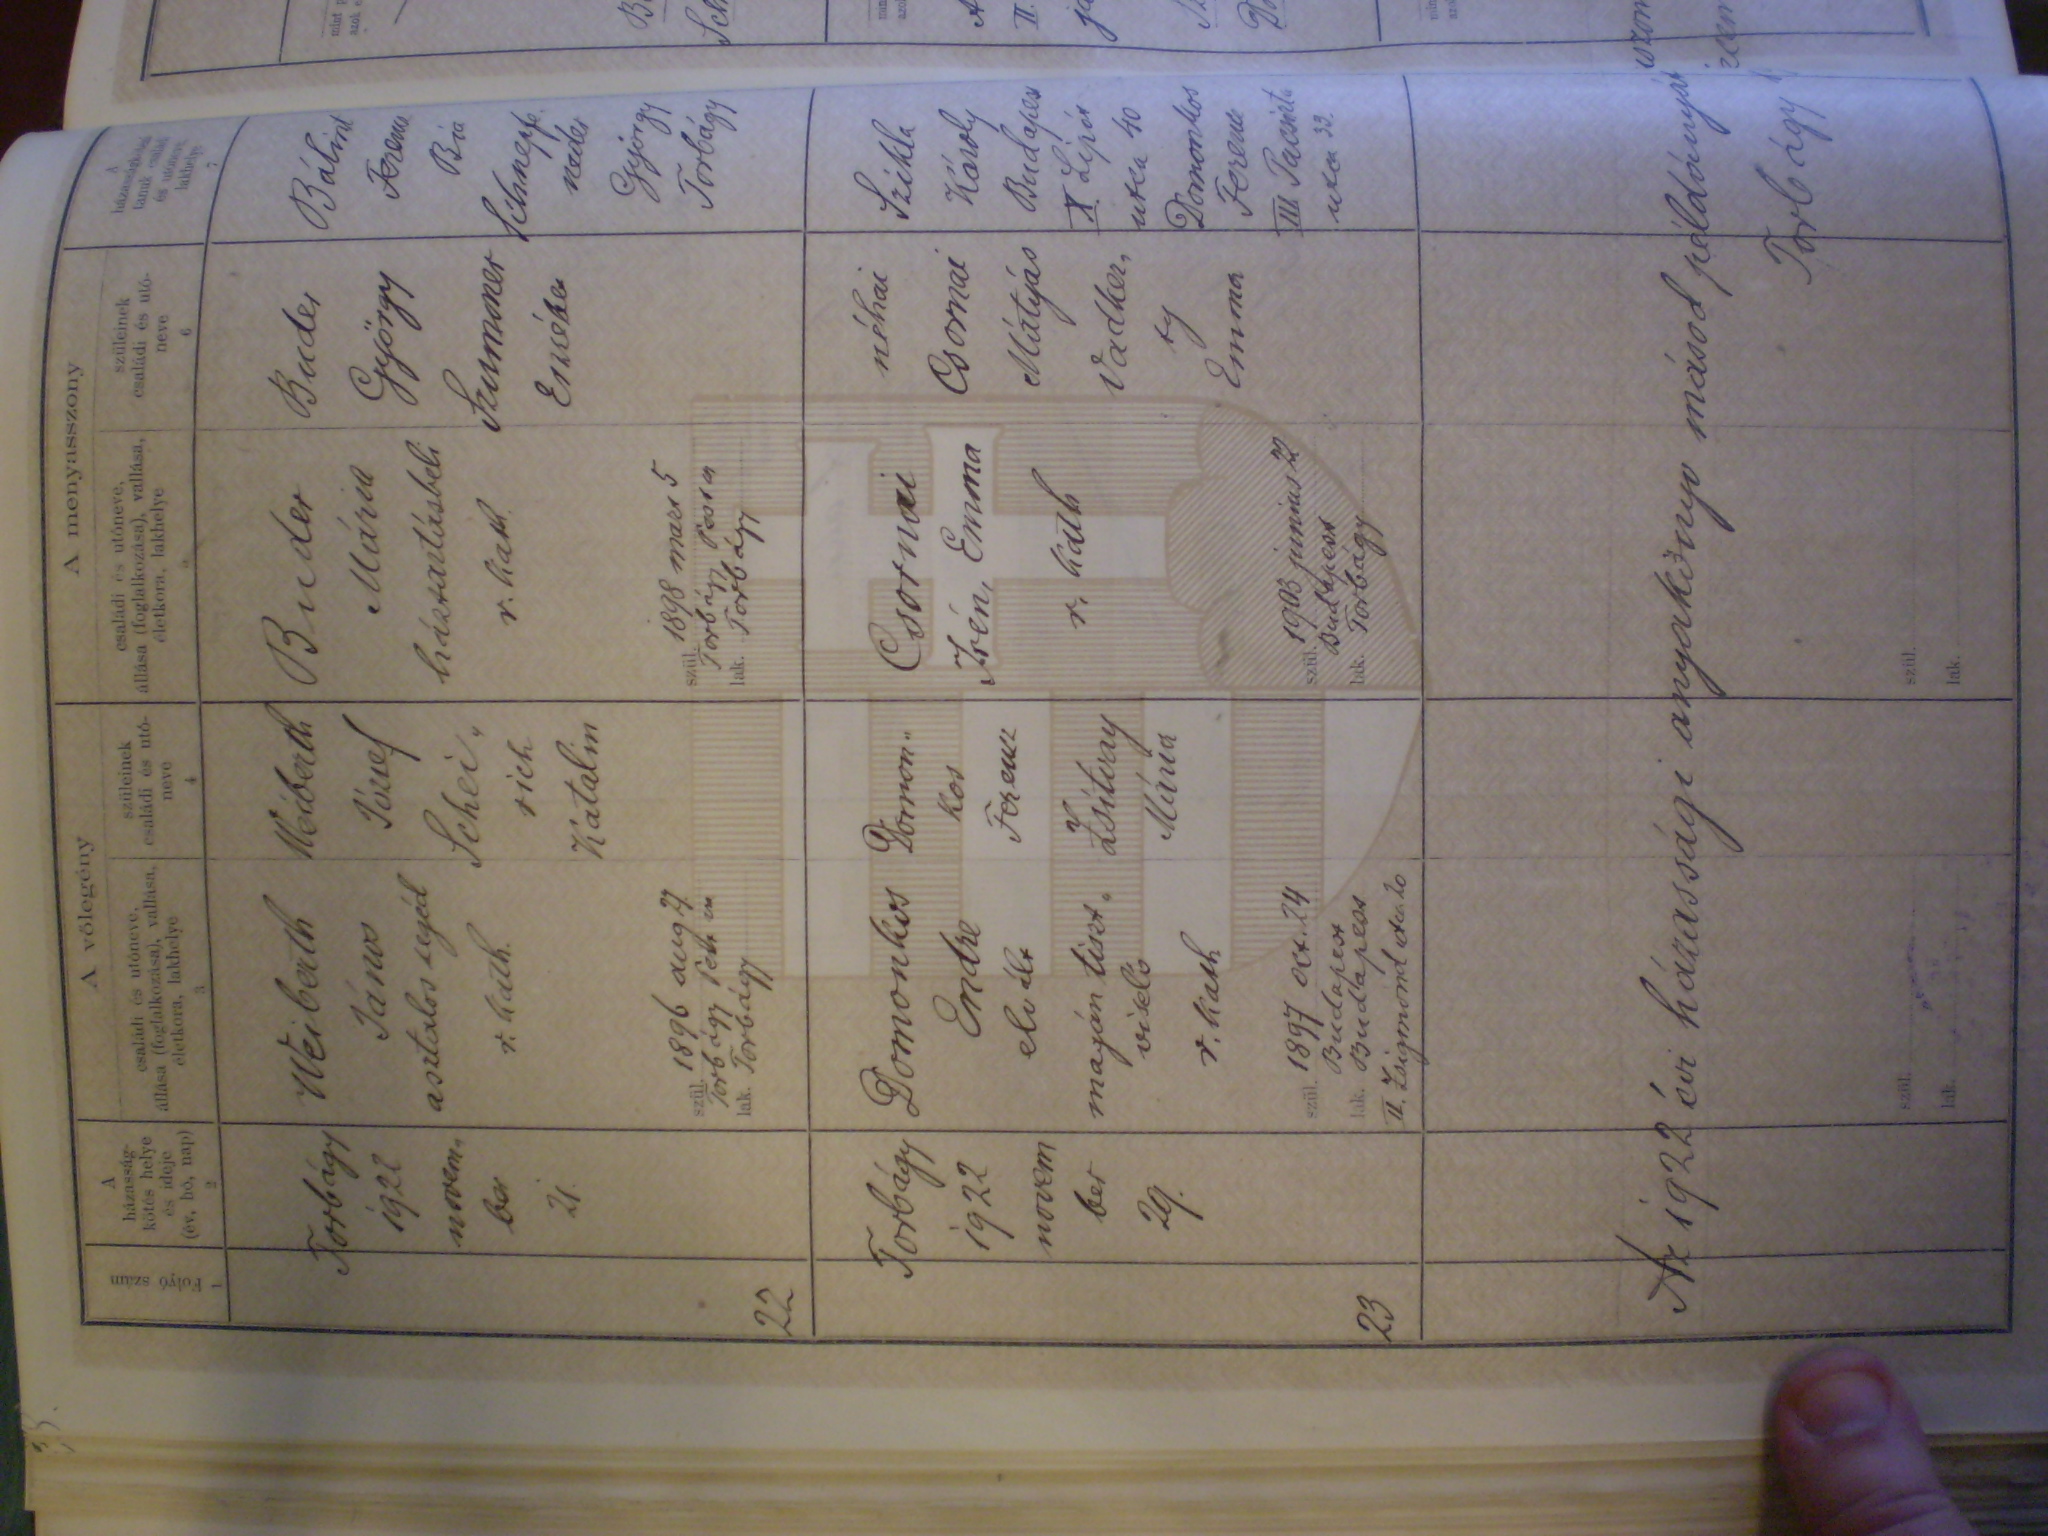 A vőlegény
A menyasszony
Folyó szám
1
A
házasság-
kötés helye
és ideje
(év, hó, nap)
2
családi és utóneve,
állása (foglalkozása), vallása,
életkora, lakhelye
3
szüleinek
családi és utó-
neve
4
családi és utóneve,
állása (foglalkozása), vallása,
életkora, lakhelye
szüleinek
családi és utó-
neve
6
A
házasságkötési
tanuk családi
és utóneve,
lakhelye
7
22
Torbágy
1922
novem-
ber
21.
Weiberth
János
asztalos segéd
r. kath.
szül. 1896 aug 27
Torbágy
lak. Torbágy
Weiberth
József
Schei-
rich
Katalin
Buder
Mária
háztartásbeli
r. kath.
szül. 1898 mars 5
Torbágy
lak. Torbágy
Buder
György
Szummer
Erzsébet
Bálint
Ferenc
Bia
György
Torbágy
23
Torbágy
1922
novem
ber
29.
Domonkos
Endre
elvált
magán tiszt-
viselő
r. kath
szül. 1897 oct. 24
Budapest
lak. Budapest
II. Zsigmond utca 20
Domon-
kos
Ferenc
Zsitvay
Mária
Csornai
Irén, Emma
r. kath
szül. 1903 junius 22
Budapest
lak. Torbágy
néhai
Csornai
Mátyás
Vadker-
ty
Emma
Szikla
Károly
Budapest
X Lipót
utca 40
Domonkos
Ferenc
III
utca 32
Az 1922 évi házassági anyakönyv másod példányát
Torbágy
szül.
lak.
szül.
lak.